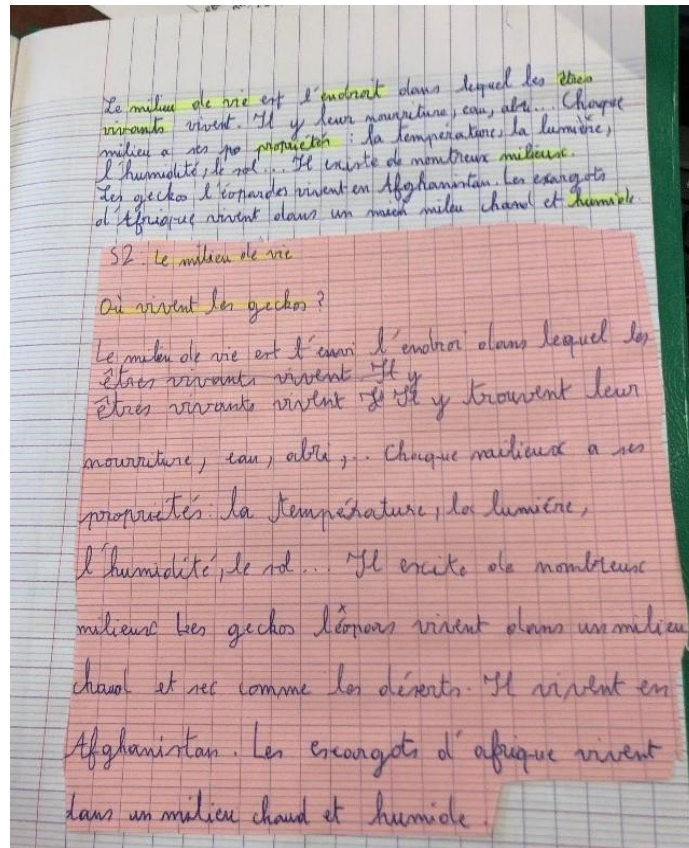 Le milieu de vie est l'endroit dans lequel les êtres
vivants vivent. Il y leur nourriture, eau, abri... Chaque
milieu a ses po propriétés : la température, la lumière,
l'humidité, le sol... Il existe de nombreux milieux.
Les geckos léopardes vivent en Afghanistan. Les escargots
d'Afrique vivent dans un milieu chaud et humide.
S2. Le milieu de vie
Où vivent les geckos ?
Le milieu de vie est l'endroi dans lequel les
êtres vivants vivent Il y
êtres vivants vivent Il y trouvent leur
nourriture, eau, abri,.. Chaque milieux a ses
propriétés: la température, la lumière,
l'humidité, le sol... Il excite de nombreux
milieux Les geckos léopars vivent dans un milieu
chaud et sec comme les déserts. Il vivent en
Afghanistan. Les escargots d'afrique vivent
dans un milieu chaud et humide.